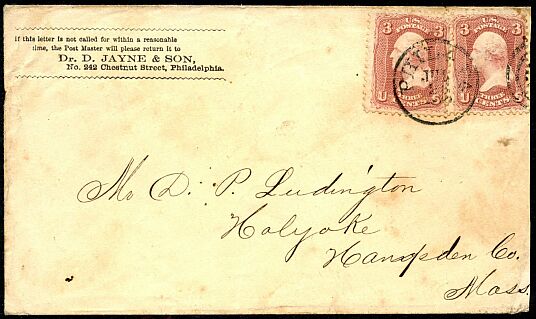 If this letter is not called for within a reasonable
time, the Post Master will please return it to
Dr. D. JAYNE & SON,
No. 242 Chestnut Street, Philadelphia.
3 U.S. POSTAGE 3
U THREE CENTS S
3 U.S. POSTAGE 3
U THREE CENTS S
Mr D. P. Ludington
Holyoke
Hampden Co.
Mass